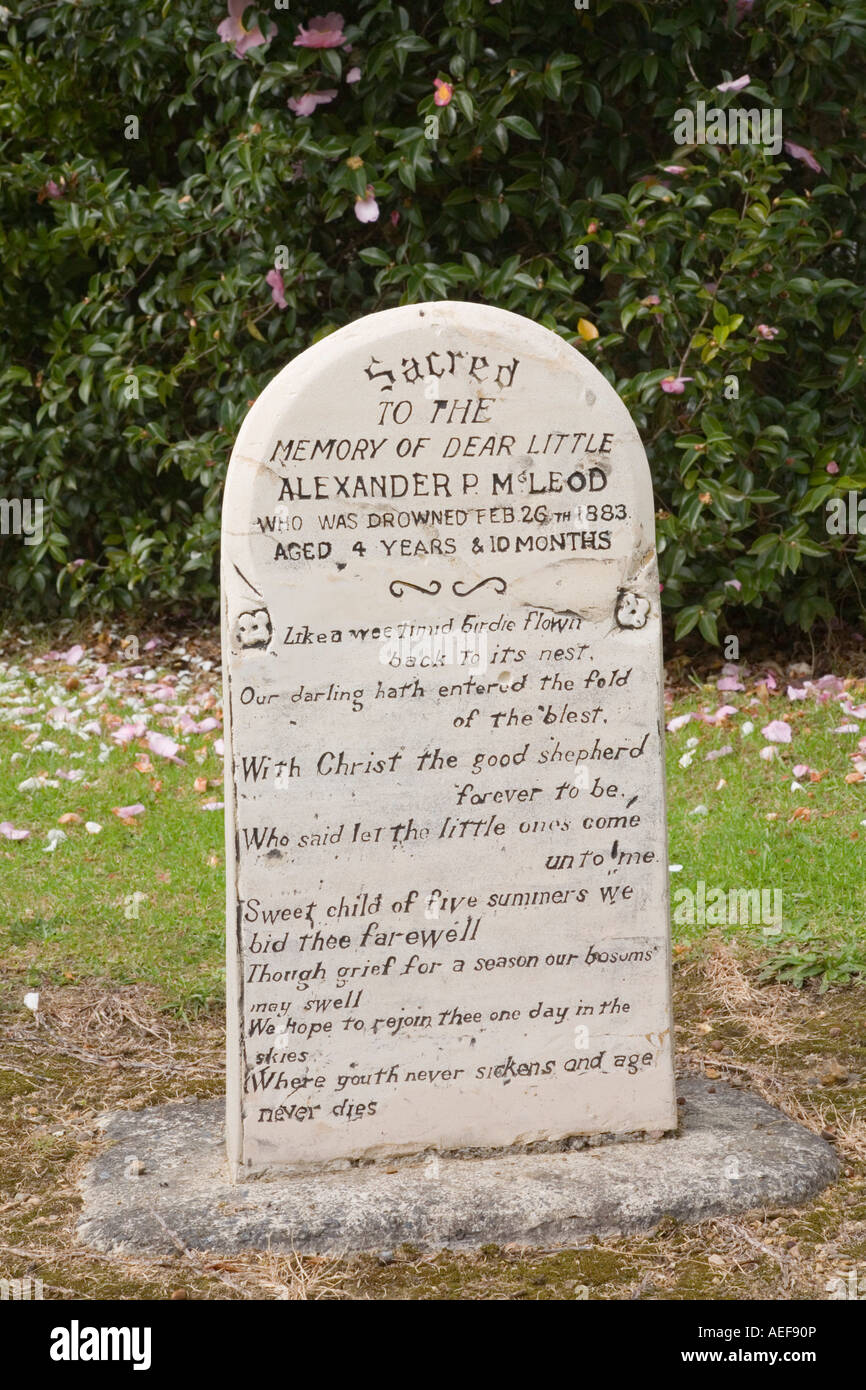 Sacred
TO THE
MEMORY OF DEAR LITTLE
ALEXANDER P. McLEOD
WHO WAS DROWNED FEB. 26TH 1883.
AGED 4 YEARS & 10 MONTHS
Like a wee timid birdie flown
back to its nest.
Our darling hath entered the fold
of the blest.
With Christ the good shepherd
forever to be.
Who said let the little ones come
unto me.
Sweet child of five summers we
bid thee farewell
Though grief for a season our bosoms
may swell
We hope to rejoin thee one day in the
skies
Where youth never sickens and age
never dies
alamy
Image ID: AEF90P
www.alamy.com